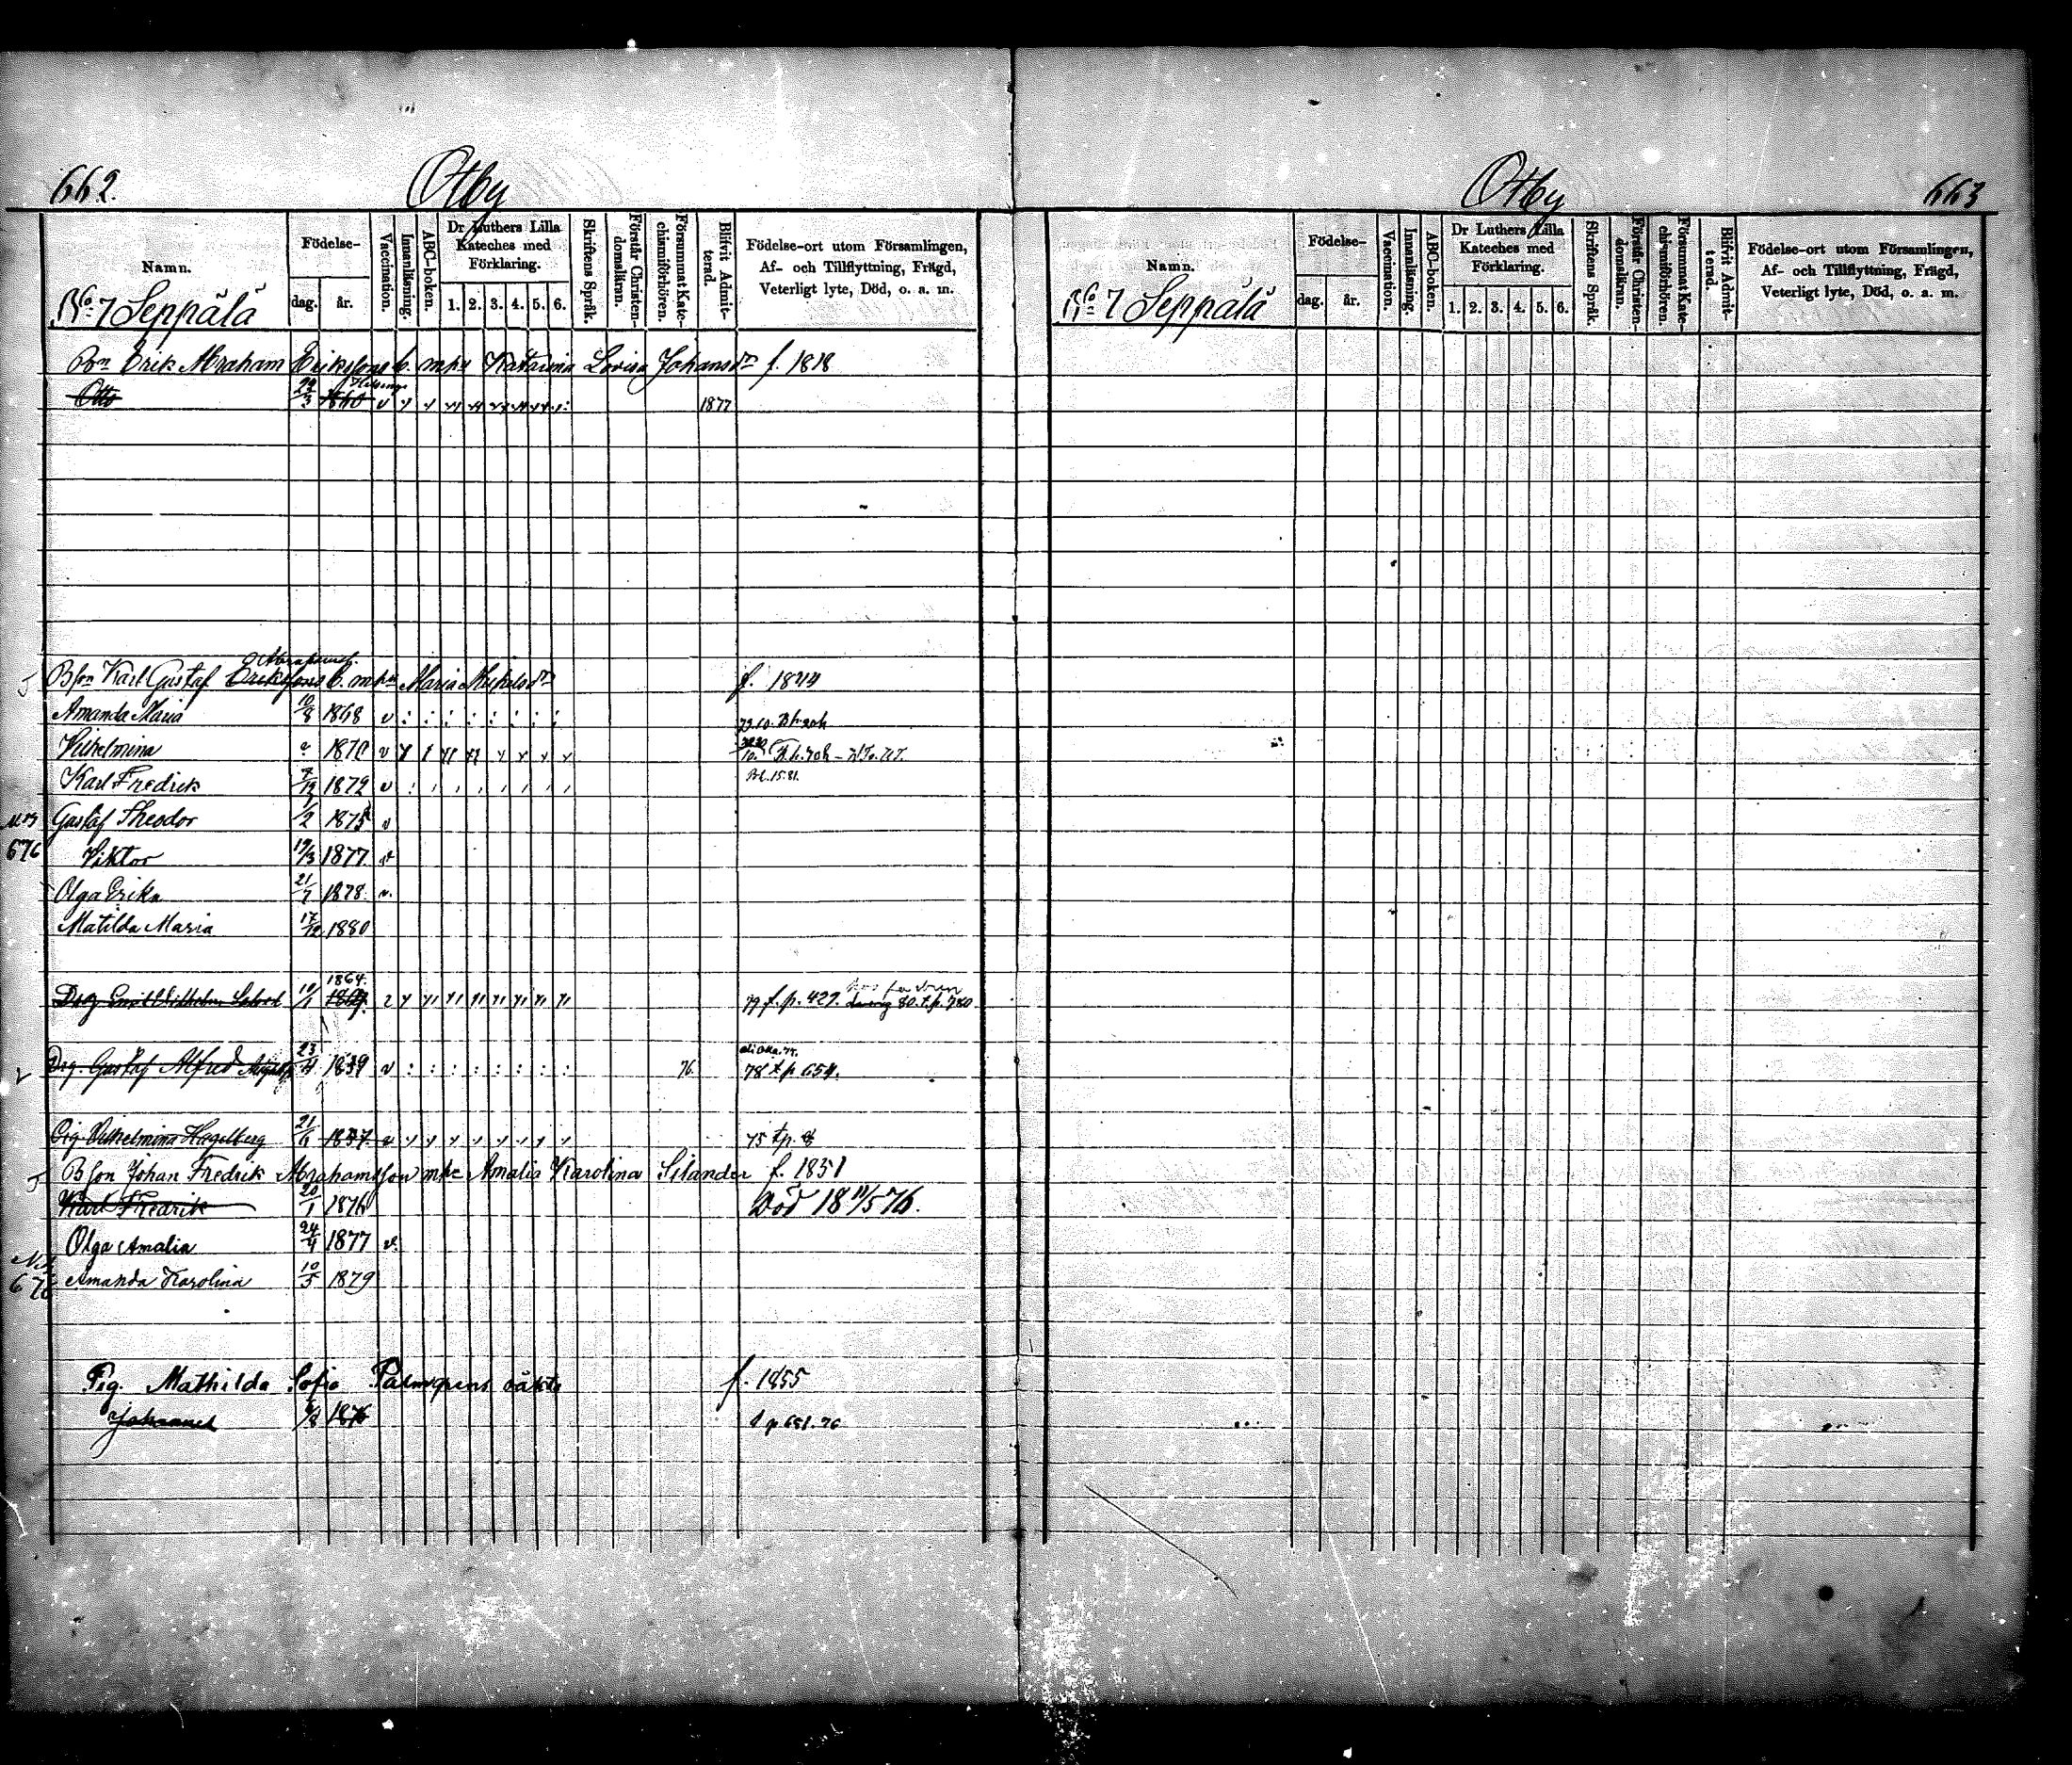 662.
Otby
Namn.
Födelse-
dag. år.
Vaccination.
Innanläsning.
ABC-boken.
Dr Luthers Lilla Kateches med Förklaring.
1. 2. 3. 4. 5. 6.
Skriftens Språk.
Förstår Christendomsläran.
Försummat Katechismiförhören.
Blifvit Admitterad.
Födelse-ort utom Församlingen,
Af- och Tillflyttning, Frägd,
Veterligt lyte, Död, o. a. m.
No 7 Seppälä
Bn Erik Abraham Erikssons b. mhu Katarina Lovisa Johansdr f. 1818
Otto 1877
Abrahams.
Bson Karl Gustaf Erikssons b. mhu Maria Mickelsdr f. 1844
Amanda Maria 10/8 1868 v
Vilhelmina 1870 v
Karl Fredrik 7/12 1872 v
Gustaf Theodor 1/2 1875 v
676
Viktor 19/3 1877 v
Olga Erika 21/7 1878 v.
Matilda Maria 17/12 1880
1864.
Drg Emil Vilhelm 10/1 79 f. p. 427. 80. t. p. 780
Drg. Gustaf Alfred 23/4 1839 v 76 78 t. p. 654.
Pig. Vilhelmina Hagelberg 21/6 1837 75 t. p.
Bson Johan Fredrik Abrahamsson mhe Amalia Karolina Silander f. 1851
Karl Fredrik 20/1 1876 Död 18 11/5 76.
Olga Amalia 24/4 1877 v.
676
Amanda Karolina 10/5 1879
Pig. Mathilda Sofia Palmgrens oäkta f. 1855
Johannes 1876 t p 651. 76
Otby
663
Namn.
Födelse-
dag. år.
Vaccination.
Innanläsning.
ABC-boken.
Dr Luthers Lilla Kateches med Förklaring.
1. 2. 3. 4. 5. 6.
Skriftens Språk.
Förstår Christendomsläran.
Försummat Katechismiförhören.
Blifvit Admitterad.
Födelse-ort utom Församlingen,
Af- och Tillflyttning, Frägd,
Veterligt lyte, Död, o. a. m.
No 7 Seppälä